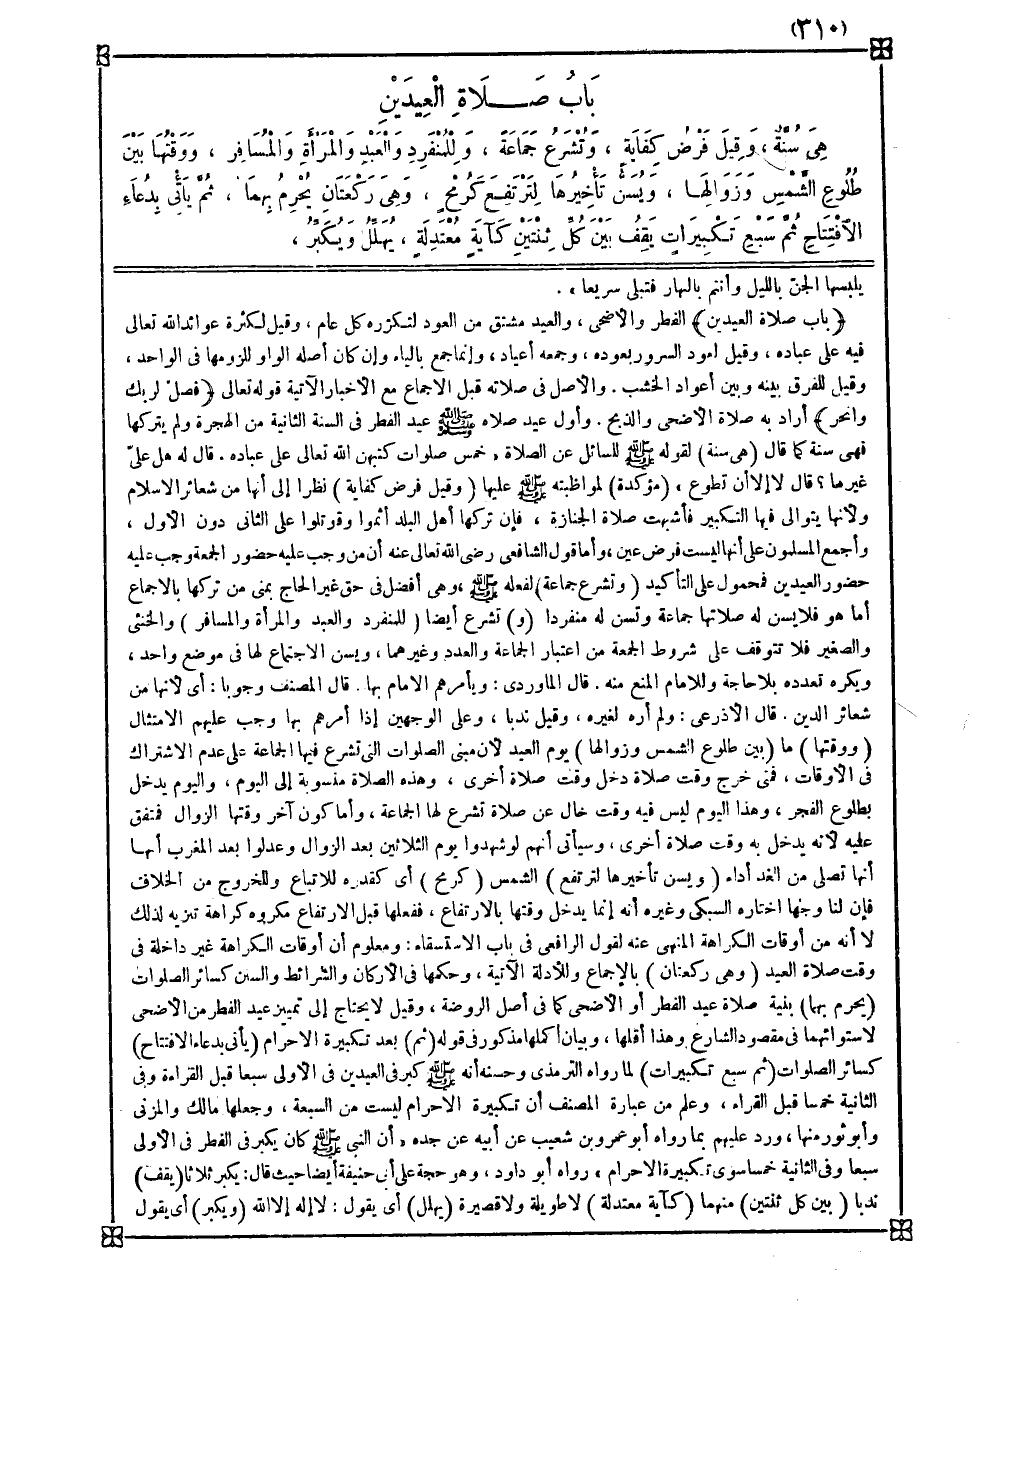 (٣١٠)
بَابُ صَلَاةِ الْعِيدَيْنِ
هِيَ سُنَّةٌ ، وَقِيلَ فَرْضُ كِفَايَةٍ ، وَتُشْرَعُ جَمَاعَةً ، وَلِلْمُنْفَرِدِ وَالْعَبْدِ وَالْمَرْأَةِ وَالْمُسَافِرِ ، وَوَقْتُهَا بَيْنَ
طُلُوعِ الشَّمْسِ وَزَوَالِهَا ، وَيُسَنُّ تَأْخِيرُهَا لِتَرْتَفِعَ كَرُمْحٍ ، وَهِيَ رَكْعَتَانِ يُحْرِمُ بِهِمَا ، ثُمَّ يَأْتِي بِدُعَاءِ
الْاَفْتِتَاحِ ثُمَّ سَبْعِ تَكْبِيرَاتٍ يَقِفُ بَيْنَ كُلِّ ثِنْتَيْنِ كَآيَةٍ مُعْتَدِلَةٍ ، يُهَلِّلُ وَيُكَبِّرُ ،
يلبسها الجن بالليل وأنتم بالنهار فتبلى سريعا » .
﴿ باب صلاة العيدين ﴾ الفطر والأضحى ، والعيد مشتق من العود لتكرره كل عام ، وقيل لكثرة عوائد الله تعالى
فيه على عباده ، وقيل لعود السرور بعوده ، وجمعه أعياد ، وإنما جمع بالياء وإن كان أصله الواو للزومها فى الواحد ،
وقيل للفرق بينه وبين أعواد الخشب . والأصل فى صلاته قبل الاجماع مع الأخبار الآتية قوله تعالى ﴿ فصل لربك
وانحر ﴾ أراد به صلاة الأضحى والذبح . وأول عيد صلاه ﷺ عيد الفطر فى السنة الثانية من الهجرة ولم يتركها
فهى سنة كما قال (هى سنة) لقوله ﷺ للسائل عن الصلاة « خمس صلوات كتبهن الله تعالى على عباده . قال له هل علىّ
غيرها ؟ قال لا إلا أن تطوع » (مؤكدة) لمواظبته ﷺ عليها ( وقيل فرض كفاية ) نظرا إلى أنها من شعائر الاسلام
ولأنها يتوالى فيها التكبير فأشبهت صلاة الجنازة ، فإن تركها أهل البلد أثموا وقوتلوا على الثانى دون الأول ،
وأجمع المسلمون على أنها ليست فرض عين ، وأما قول الشافعى رضى الله تعالى عنه أن من وجب عليه حضور الجمعة وجب عليه
حضور العيدين فمحمول على التأكيد ( وتشرع جماعة ) لفعله ﷺ ، وهى أفضل فى حق غير الحاج بمنى من تركها بالاجماع
أما هو فلا يسن له صلاتها جماعة وتسن له منفردا (و) تشرع أيضا ( للمنفرد والعبد والمرأة والمسافر ) والخنثى
والصغير فلا تتوقف على شروط الجمعة من اعتبار الجماعة والعدد وغيرهما ، ويسن الاجتماع لها فى موضع واحد ،
ويكره تعدده بلا حاجة وللامام المنع منه . قال الماوردى : ويأمرهم الامام بها . قال المصنف وجوبا : أى لأنها من
شعائر الدين . قال الأذرعى : ولم أره لغيره ، وقيل ندبا ، وعلى الوجهين إذا أمرهم بها وجب عليهم الامتثال
( ووقتها ) ما (بين طلوع الشمس وزوالها ) يوم العيد لأن مبنى الصلوات التى تشرع فيها الجماعة على عدم الاشتراك
فى الأوقات ، فمتى خرج وقت صلاة دخل وقت صلاة أخرى ، وهذه الصلاة منسوبة إلى اليوم ، واليوم يدخل
بطلوع الفجر ، وهذا اليوم ليس فيه وقت خال عن صلاة تشرع لها الجماعة ، وأما كون آخر وقتها الزوال فمتفق
عليه لأنه يدخل به وقت صلاة أخرى ، وسيأتى أنهم لو شهدوا يوم الثلاثين بعد الزوال وعدلوا بعد المغرب أنها
أنها تصلى من الغد أداء ( ويسن تأخيرها لترتفع ) الشمس ( كرمح ) أى كقدره للاتباع وللخروج من الخلاف
فإن لنا وجها اختاره السبكى وغيره أنه إنما يدخل وقتها بالارتفاع ، ففعلها قبل الارتفاع مكروه كراهة تنزيه لذلك
لا أنه من أوقات الكراهة المنهى عنه لقول الرافعى فى باب الاستسقاء : ومعلوم أن أوقات الكراهة غير داخلة فى
وقت صلاة العيد ( وهى ركعتان ) بالإجماع وللأدلة الآتية ، وحكمها فى الأركان والشرائط والسنن كسائر الصلوات
(يحرم بها) بنية صلاة عيد الفطر أو الأضحى كما فى أصل الروضة ، وقيل لا يحتاج إلى تمييز عيد الفطر من الأضحى
لاستوائهما فى مقصود الشارع وهذا أقلها ، وبيان أكملها مذكور فى قوله (ثم) بعد تكبيرة الاحرام (يأتى بدعاء الافتتاح)
كسائر الصلوات (ثم سبع تكبيرات) لما رواه الترمذى وحسنه أنه ﷺ كبر فى العيدين فى الأولى سبعا قبل القراءة وفى
الثانية خمسا قبل القراء ، وعلم من عبارة المصنف أن تكبيرة الاحرام ليست من السبعة ، وجعلها مالك والمزنى
وأبو ثور منها ، ورد عليهم بما رواه أبو عمرو بن شعيب عن أبيه عن جده « أن النبى ﷺ كان يكبر فى الفطر فى الأولى
سبعا وفى الثانية خمسا سوى تكبيرة الاحرام » رواه أبو داود ، وهو حجة على أبى حنيفة أيضا حيث قال : يكبر ثلاثا (يقف)
ندبا ( بين كل ثنتين ) منهما ( كآية معتدلة ) لا طويلة ولا قصيرة (يهلل) أى يقول : لا إله إلا الله (ويكبر) أى يقول